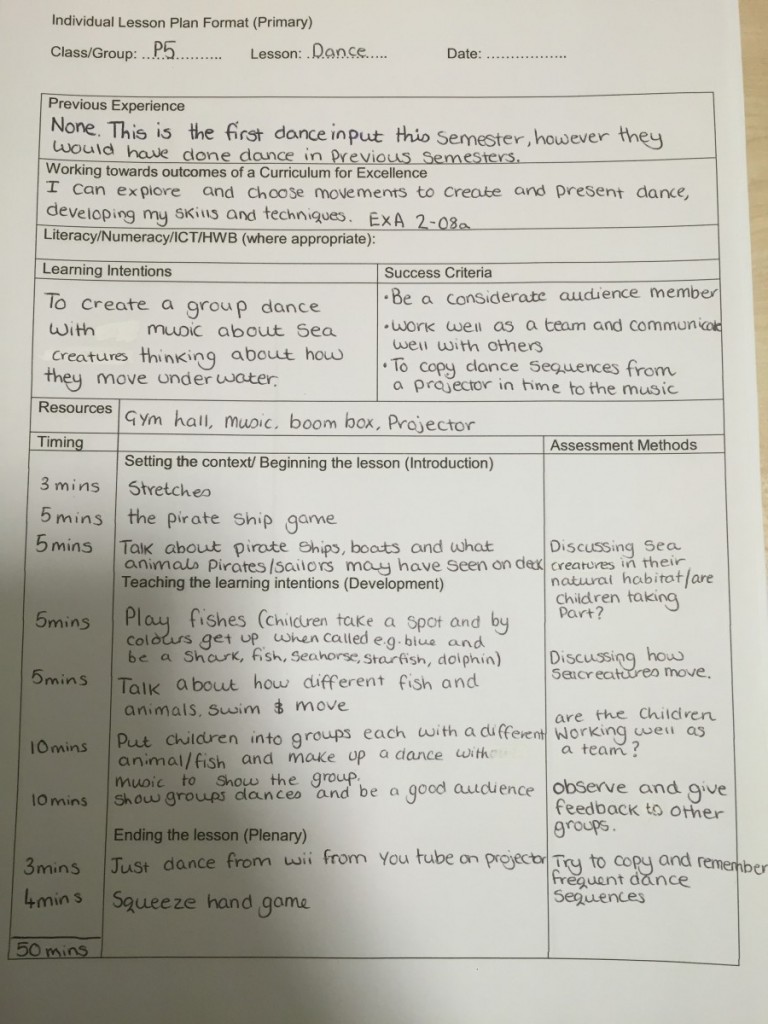 Individual Lesson Plan Format (Primary)
Class/Group: ....P5.......... Lesson: .Dance..... Date: .................
Previous Experience
None. This is the first dance input this semester, however they
would have done dance in Previous Semesters.
Working towards outcomes of a Curriculum for Excellence
I can explore and choose movements to create and present dance,
developing my skills and techniques. EXA 2-08a
Literacy/Numeracy/ICT/HWB (where appropriate):
Learning Intentions
To create a group dance
with music about sea
creatures thinking about how
they move underwater.
Success Criteria
• Be a considerate audience member
• work well as a team and communicate
well with others
• To copy dance sequences from
a projector in time to the music
Resources
Gym hall, music, boom box, Projector
Timing
Assessment Methods
Setting the context/ Beginning the lesson (Introduction)
3 mins Stretches
5 mins the pirate ship game
5 mins Talk about pirate ships, boats and what
animals pirates/sailors may have seen on deck
Discussing sea
creatures in their
natural habitat/are
children taking
Part?
Teaching the learning intentions (Development)
5mins Play fishes (children take a spot and by
colours get up when called e.g. blue and
be a shark, fish, seahorse, starfish, dolphin)
5mins Talk about how different fish and
animals, swim & move
Discussing how
seacreatures move.
10mins Put children into groups each with a different
animal/fish and make up a dance with
music to show the group.
are the children
working well as
a team?
10mins Show groups dances and be a good audience
observe and give
feedback to other
groups.
Ending the lesson (Plenary)
3mins Just dance from wii from You tube on projector
4mins Squeeze hand game
Try to copy and remember
frequent dance
sequences
50 mins